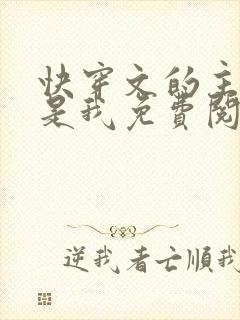 快穿文的主
是我免费阅
逆我者亡順我